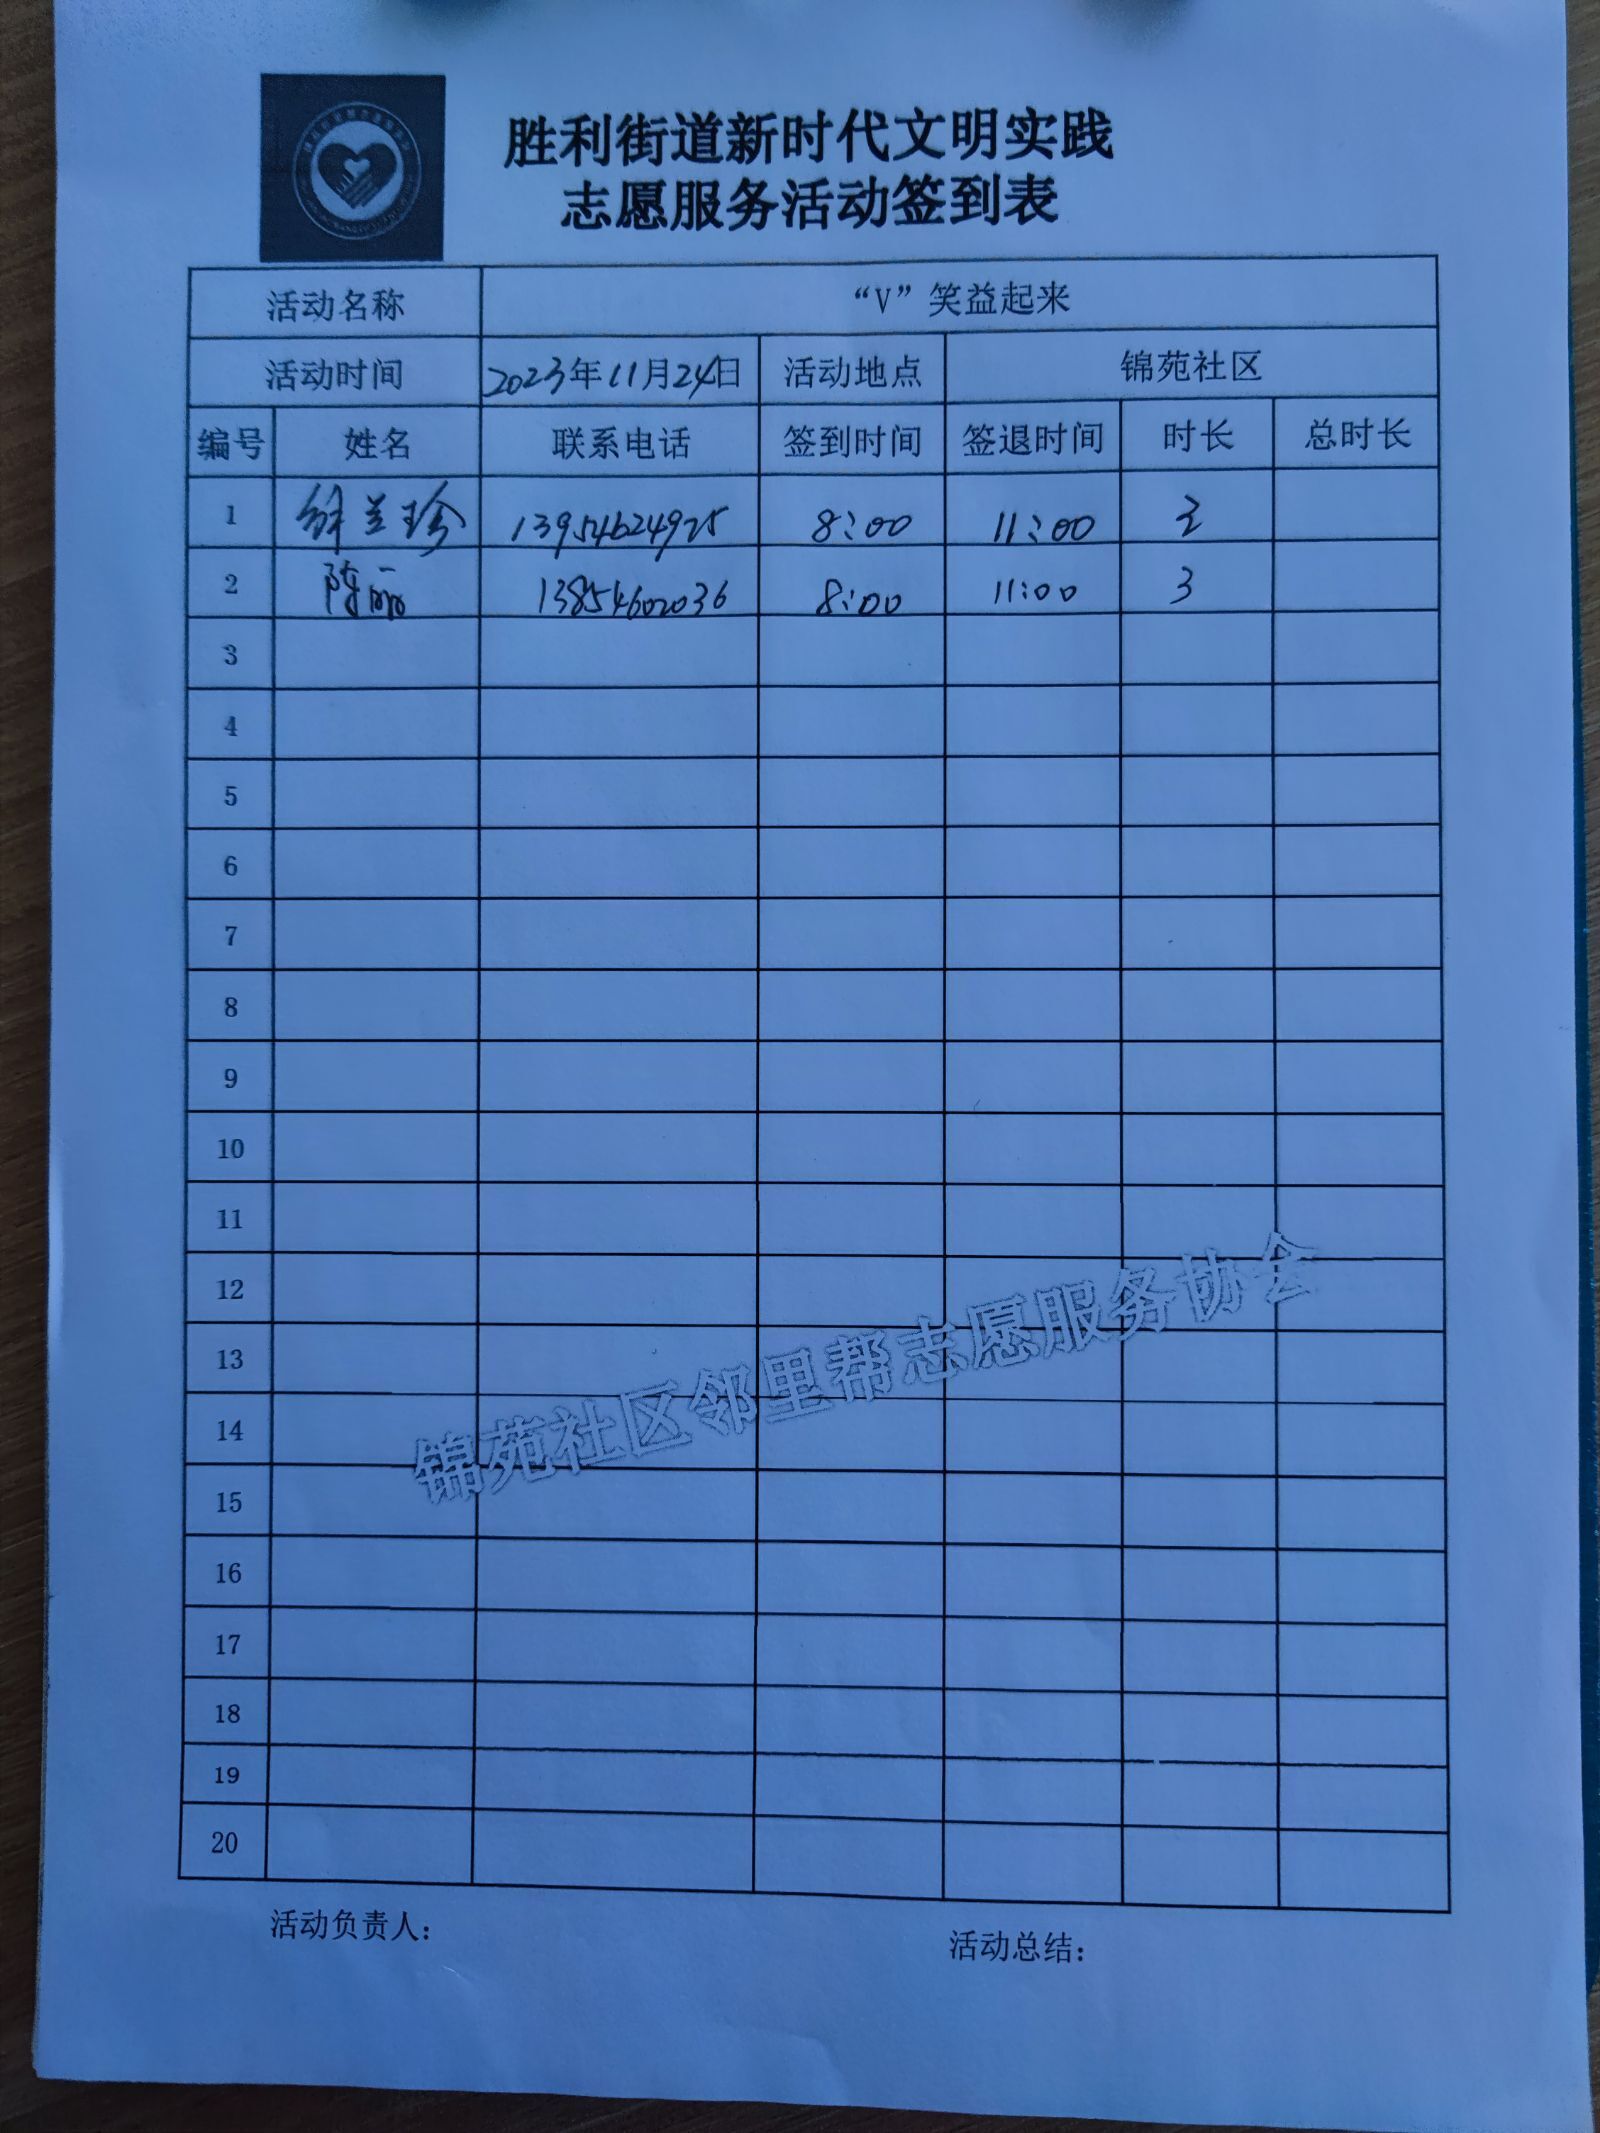 胜利街道新时代文明实践
志愿服务活动签到表
活动名称 “V”笑益起来
活动时间 2023年11月24日 活动地点 锦苑社区
编号 姓名 联系电话 签到时间 签退时间 时长 总时长
1 兰珍 13954624925 8:00 11:00 3
2 陈丽 13854602036 8:00 11:00 3
3
4
5
6
7
8
9
10
11
12
13
14
15
16
17
18
19
20
锦苑社区邻里帮志愿服务协会
活动负责人： 活动总结：